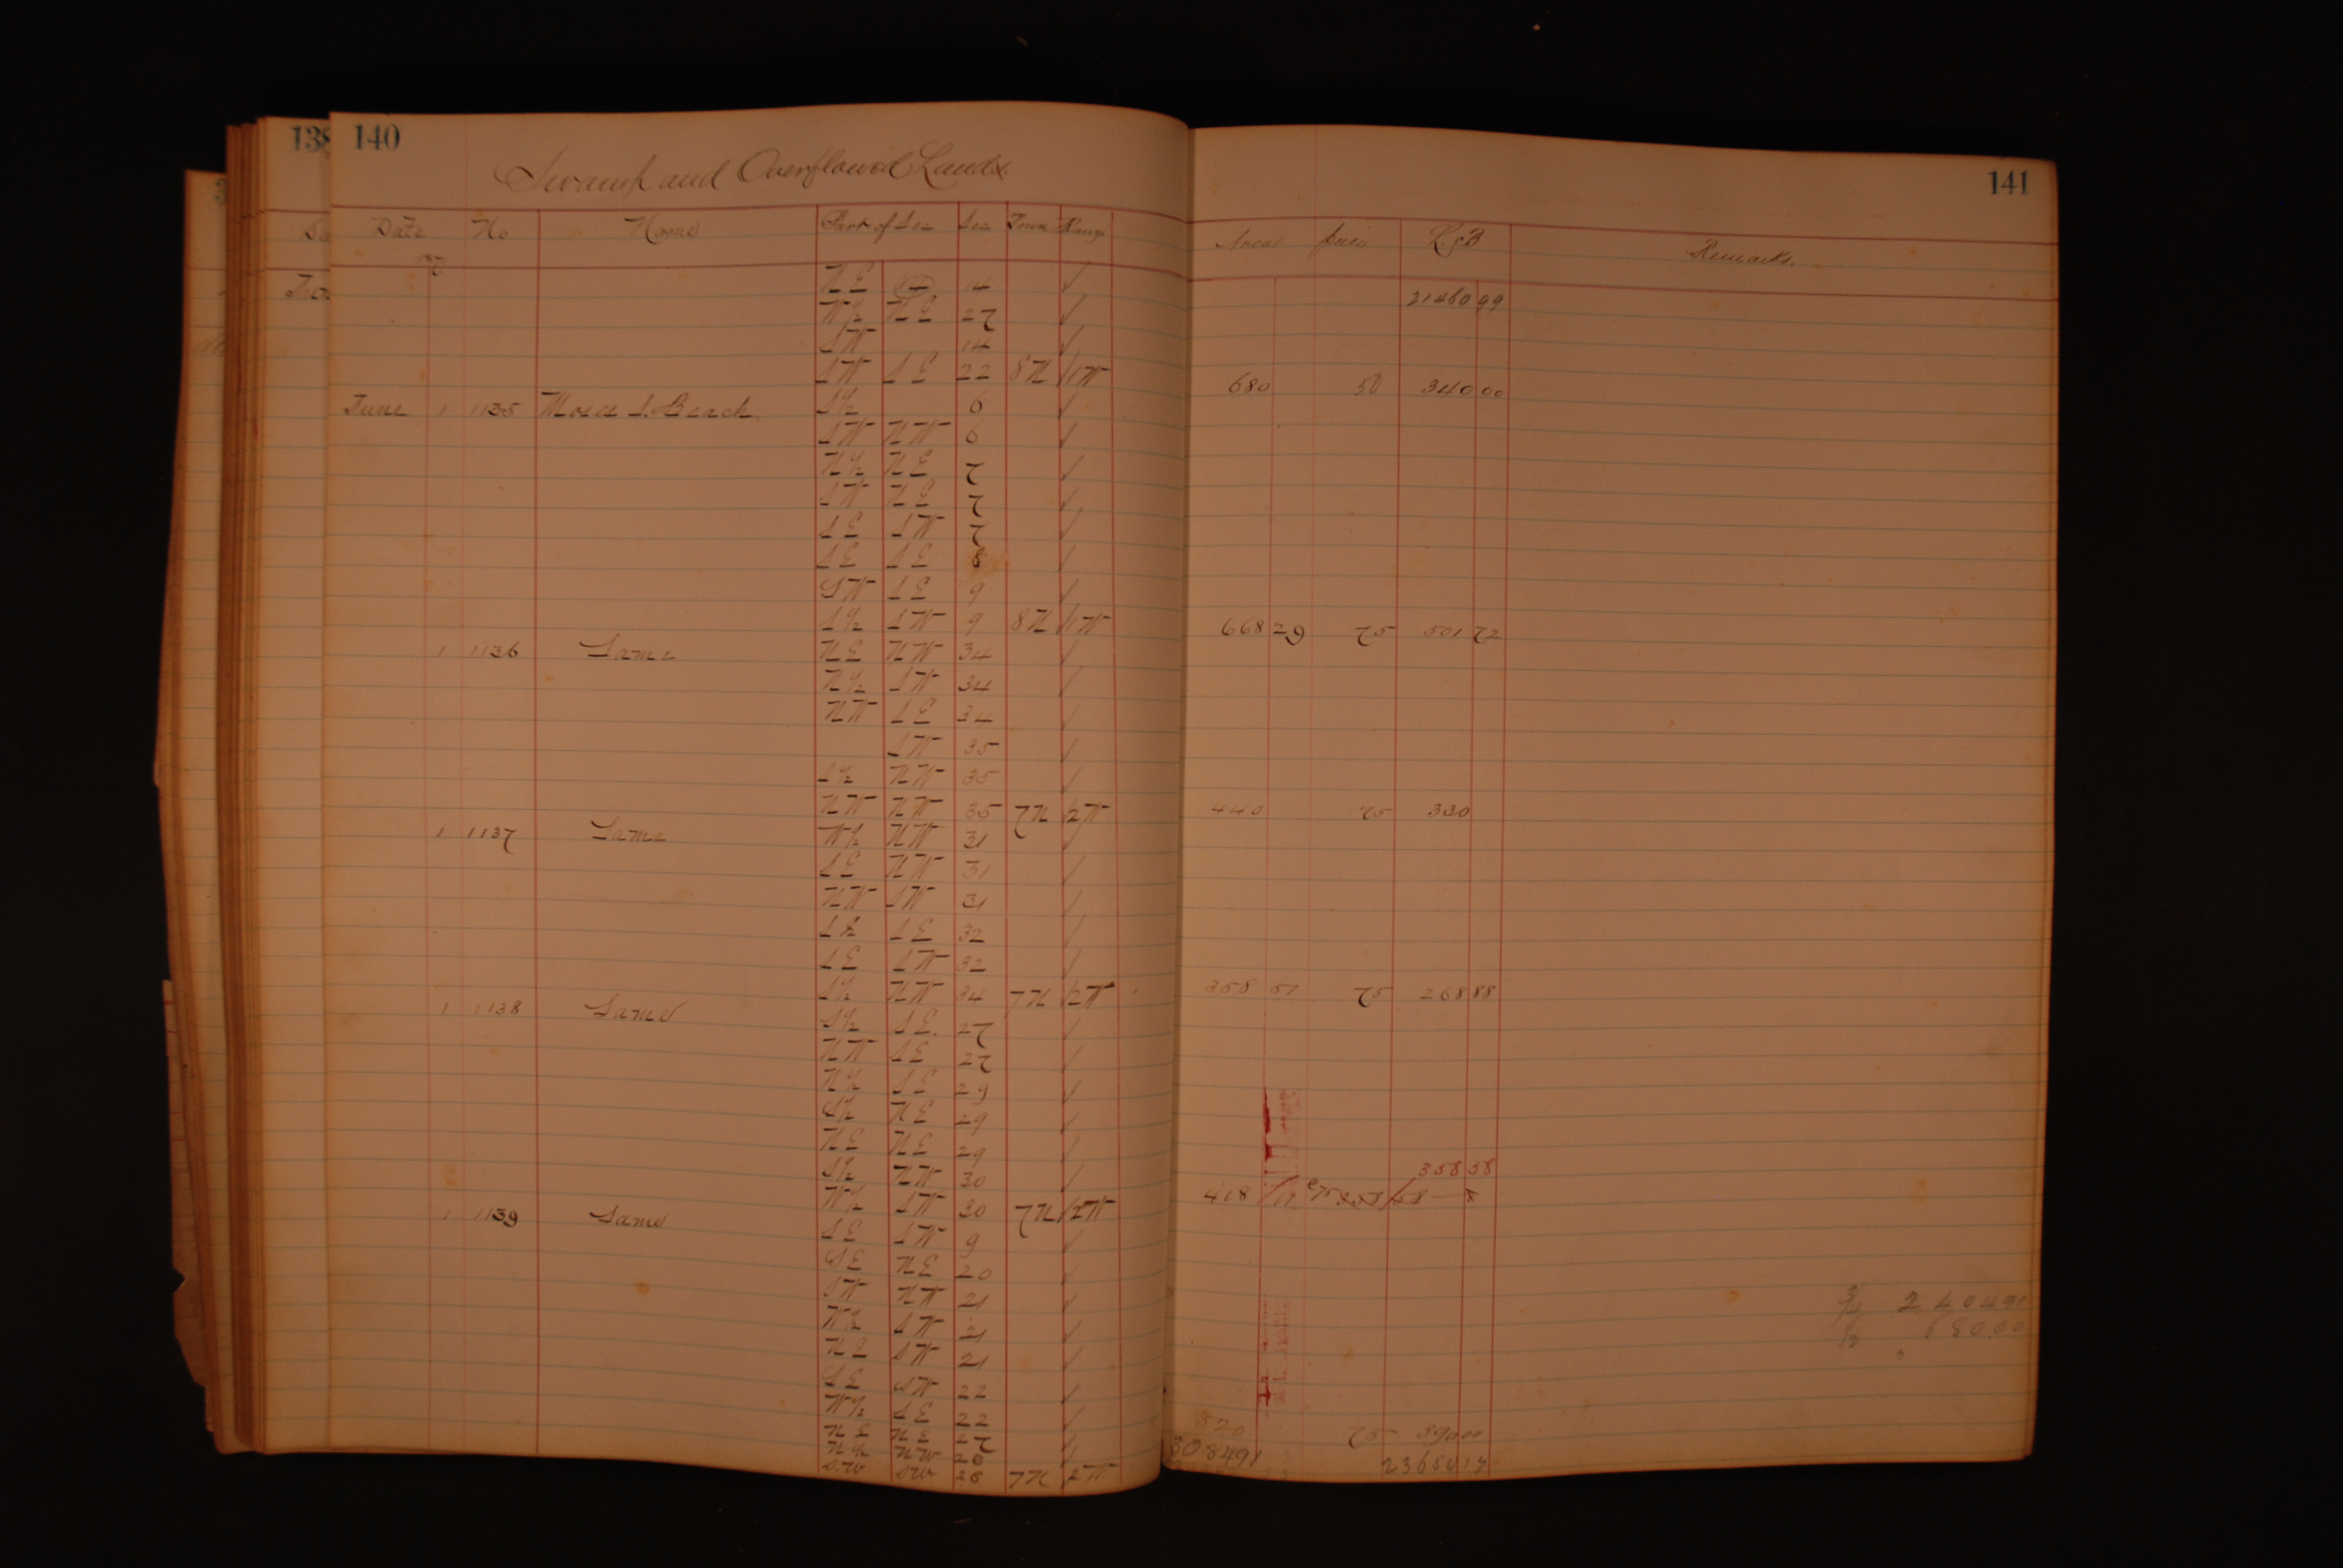 138 140
Swamp and Overflowed Lands.
141
Date No Name Part of Sec Sec Town Range Area price Remarks.
187
NE 14 ✓ 21460 99
W½ NE 27 ✓
SW 14 ✓
SW SE 22 8N 1W 680 50 340 00
June 1 1135 Moses S. Beach. S½ 6 ✓
SW NW 6 ✓
N½ NE 7 ✓
SW NE 7 ✓
SE SW 7 ✓
SE SE 8 ✓
SW SE 9 ✓
S½ SW 9 8N 1W 668 29 75 501 72
1 1136 Same NE NW 34 ✓
N½ SW 34 ✓
NW SE 34 ✓
SW 35 ✓
S½ NW 35 ✓
NW NW 35 7N 2W 440 75 330
1 1137 Same W½ NW 31 ✓
SE NW 31 ✓
NW SW 31 ✓
S½ SE 32 ✓
SE SW 32 ✓
S½ NW 34 7N 2W 358 51 75 268 88
1 1138 Same S½ SE. 27 ✓
NW SE 27 ✓
N½ SE 29 ✓
S½ NE 29 ✓
NE NE 29 ✓
S½ NW 30 ✓ 358 58
W½ SW 30 7N 2W 418 11 75
1 1139 Same SE SW 9 ✓
SE NE 20 ✓
SW NW 21 ✓
W½ SW 21 ✓
NE SW 21 ✓
SE SW 22 ✓
W½ SE 22 ✓
NE NE 27 ✓
N½ NW 26 ✓
SW SW 26 7N 2W 520 75 390 00
308491 23650 17
3/4 240491
1/2 68000